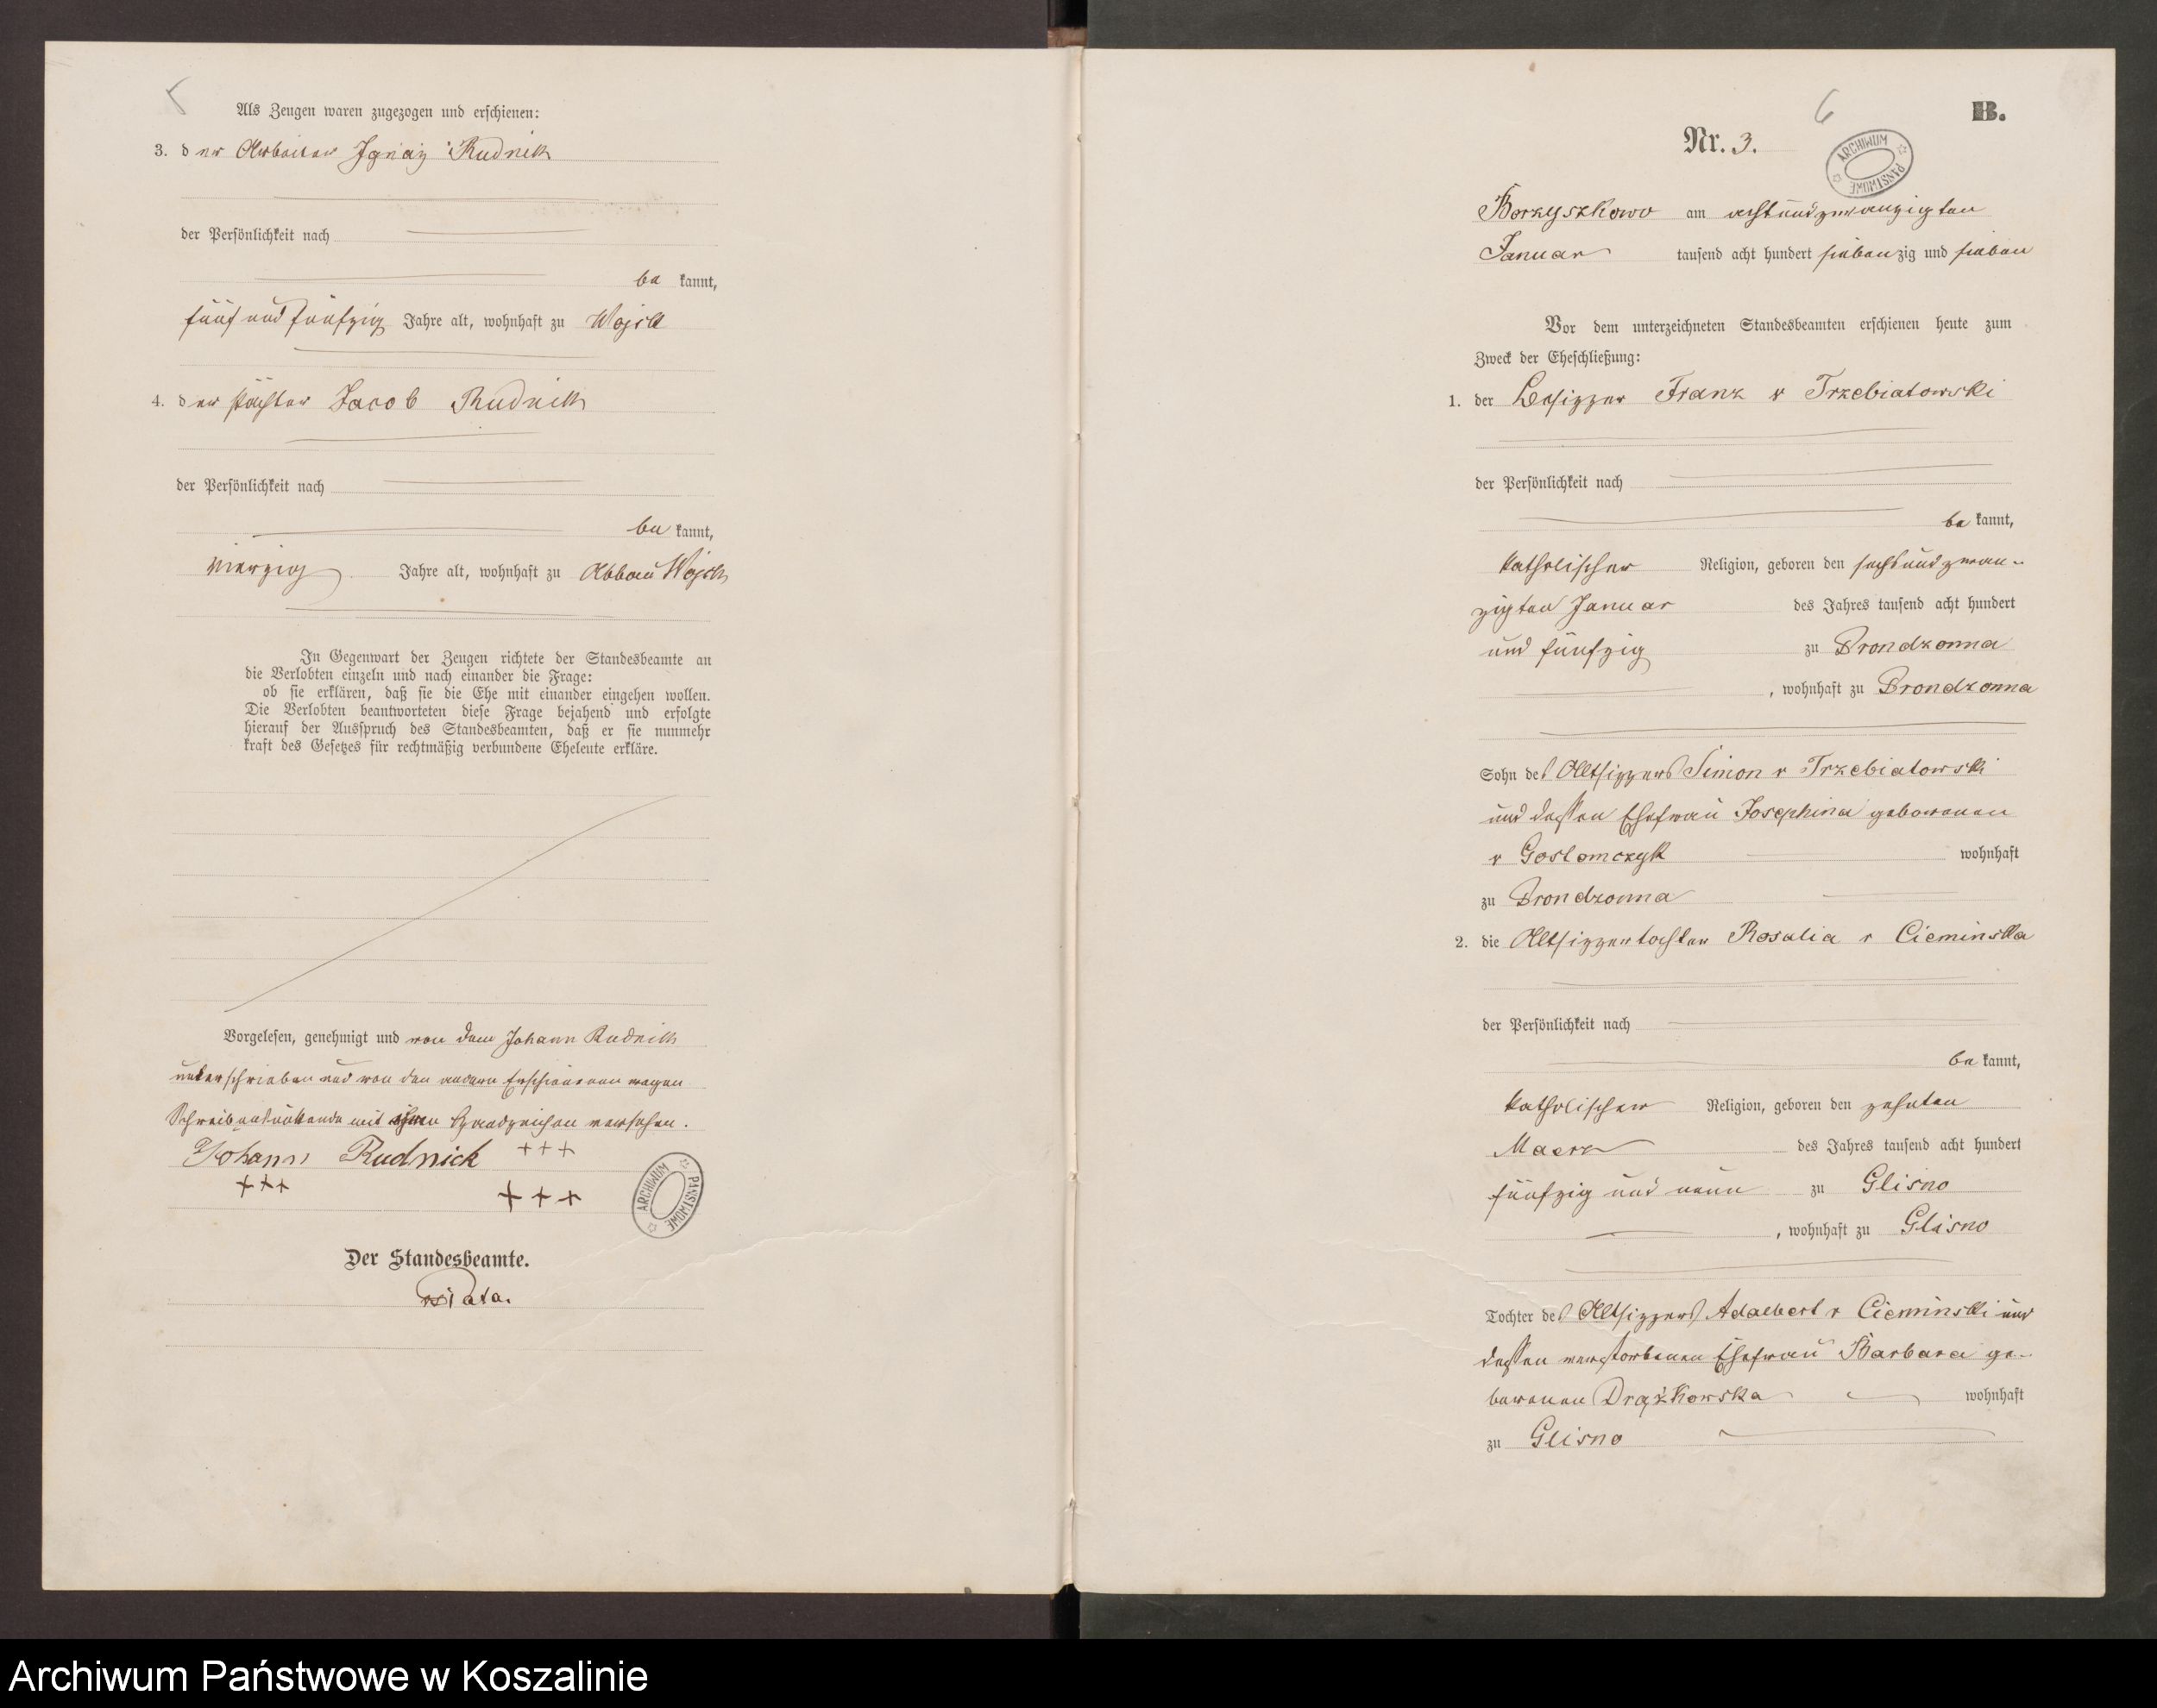 Als Zeugen waren zugezogen und erschienen:
3. der Arbeiter Ignaz Rudnik
der Persönlichkeit nach
be kannt,
fünf und fünfzig Jahre alt, wohnhaft zu Wojsk
4. der Pächter Jacob Rudnik
der Persönlichkeit nach
be kannt,
vierzig Jahre alt, wohnhaft zu Abbau Wojsk
In Gegenwart der Zeugen richtete der Standesbeamte an
die Verlobten einzeln und nach einander die Frage:
ob sie erklären, daß sie die Ehe mit einander eingehen wollen.
Die Verlobten beantworteten diese Frage bejahend und erfolgte
hierauf der Ausspruch des Standesbeamten, daß er sie nunmehr
kraft des Gesetzes für rechtmäßig verbundene Eheleute erkläre.
Vorgelesen, genehmigt und von dem Johann Rudnik
unterschrieben und von den andern Erschienenen wegen
Schreibensunkunde mit Handzeichen versehen.
Johann Rudnick +++
+++ +++
ARCHIWUM PAŃSTWOWE
Der Standesbeamte.
Piata.
6
B.
Nr. 3.
ARCHIWUM PAŃSTWOWE
Borzyszkowo am achtundzwanzigten
Januar tausend acht hundert siebenzig und sieben
Vor dem unterzeichneten Standesbeamten erschienen heute zum
Zweck der Eheschließung:
1. der Besitzer Franz v Trzebiatowski
der Persönlichkeit nach
be kannt,
katholischer Religion, geboren den sechsundzwan-
zigten Januar des Jahres tausend acht hundert
und fünfzig zu Brondzonna
, wohnhaft zu Brondzonna
Sohn des Altsitzers Simon v Trzebiatowski
und dessen Ehefrau Josephina geborenen
v Gostomczyk wohnhaft
zu Brondzonna
2. die Altsitzertochter Rosalia v Cieminska
der Persönlichkeit nach
be kannt,
katholischer Religion, geboren den zehnten
Maerz des Jahres tausend acht hundert
fünfzig und neun zu Glisno
, wohnhaft zu Glisno
Tochter des Altsitzers Adalbert v Cieminski und
dessen verstorbenen Ehefrau Barbara ge-
borenen Drążkowska wohnhaft
zu Glisno
Archiwum Państwowe w Koszalinie